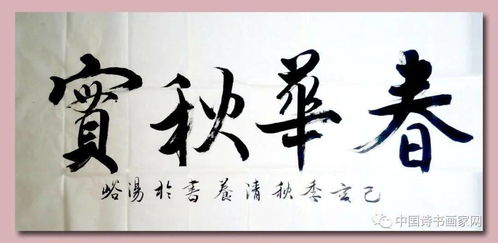 春華秋實
己亥季秋清養書於湯峪
中国诗书画家网